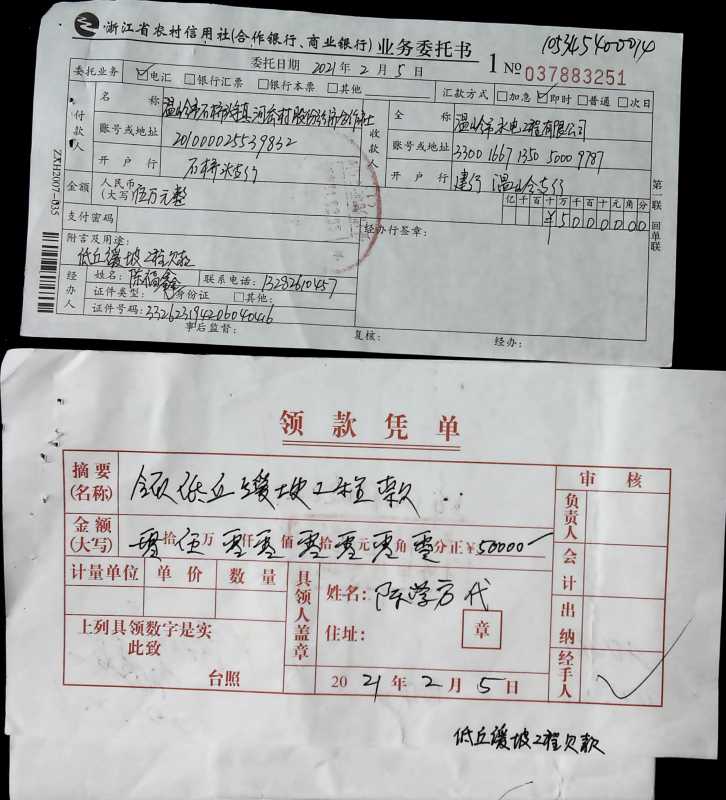 浙江省农村信用社(合作银行、商业银行)业务委托书
105345400014
委托日期 2021年 2月 5日
1 No 037883251
委托业务 ☑电汇 □银行汇票 □银行本票 □其他
汇款方式 □加急 ☑即时 □普通 □次日
付款人
名 称 温岭市石桥头镇 村股份经济合作社
账号或地址 201000025539832
开户行 石桥头支行
收款人
全 称 温岭市水电工程有限公司
账号或地址 3300 1667 1350 5000 9787
开户行 建行 温岭支行
金额 人民币(大写) 伍万元整
亿千百十万千百十元角分
¥5000000
支付密码
经办行签章:
附言及用途:
低丘缓坡工程欠款
经办人
姓名: 陈福鑫 联系电话: 13282610457
证件类型: 身份证 □其他:
证件号码: 332623194206040416
事后监督: 复核: 经办:
第一联 回单联
ZXH2007-035
领款凭单
摘要(名称) 领低丘缓坡工程款
审核
金额(大写) 零拾伍万零仟零佰零拾零元零角零分正 ¥50000—
负责人
会计
出纳
经手人
计量单位 单价 数量
具领人盖章
姓名: 陈学方代
住址: 章
上列具领数字是实
此致
台照
2021年 2月 5日
低丘缓坡工程欠款